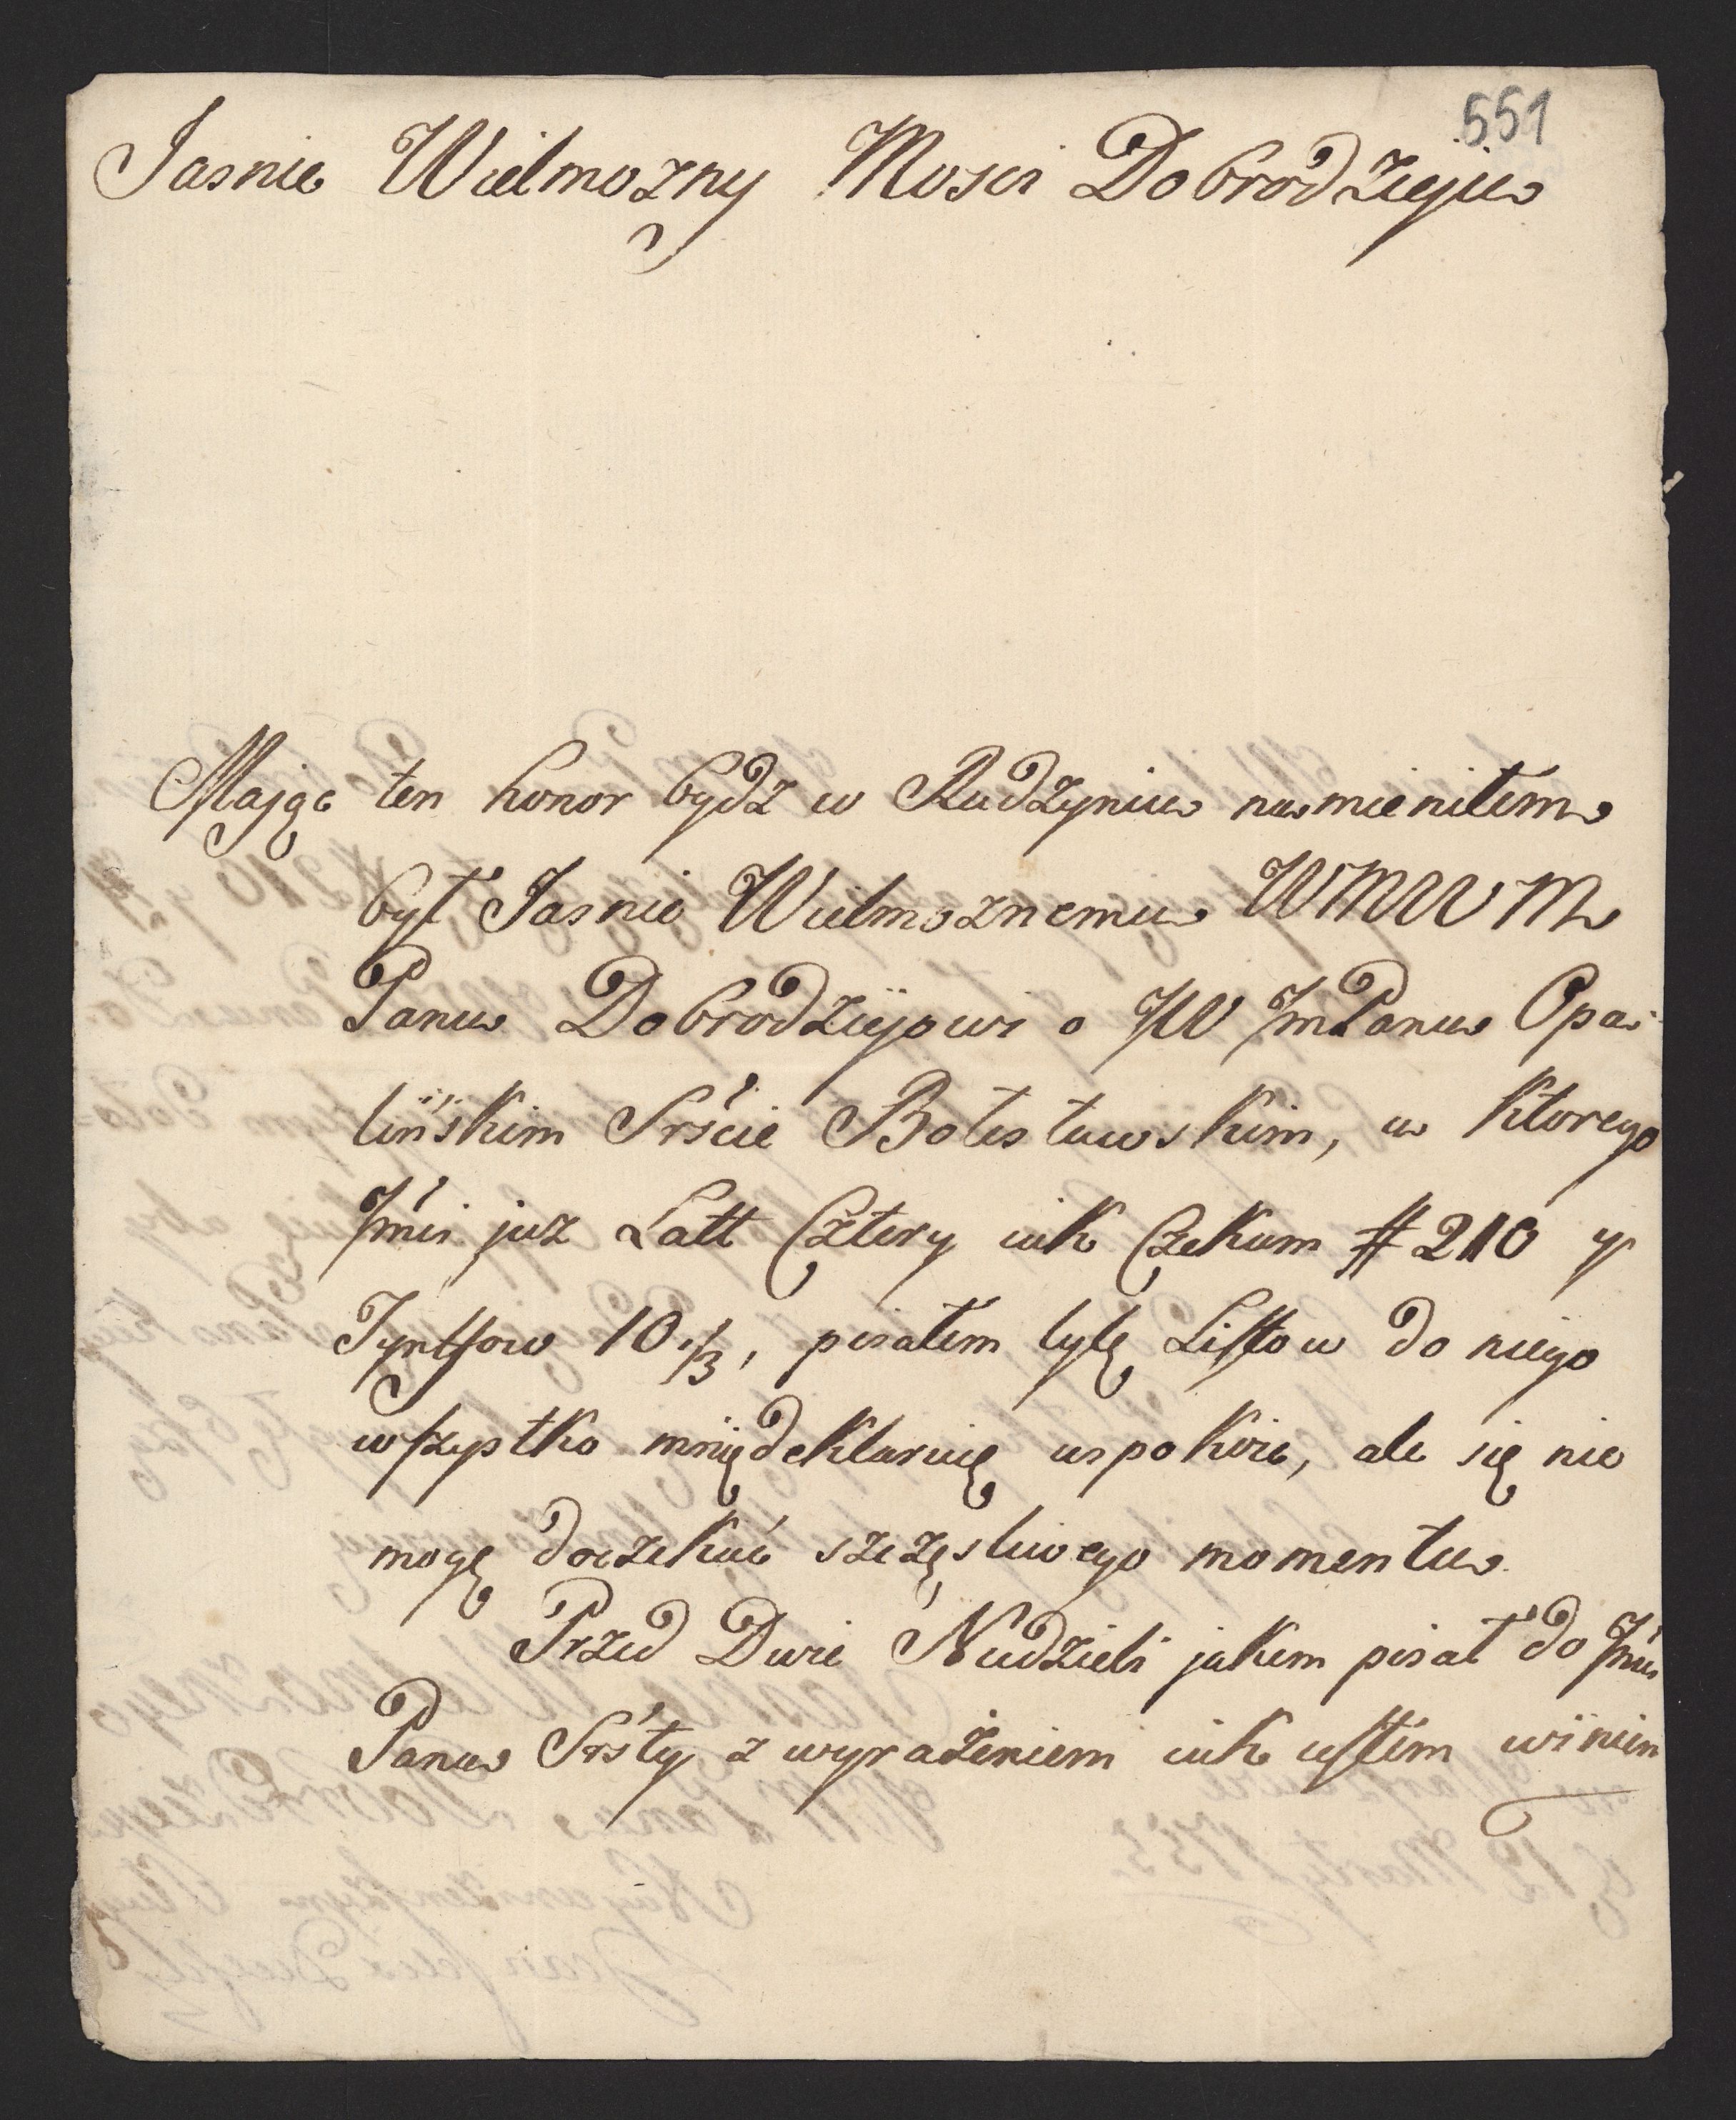 551
Jasnie Wielmozny Mosci Dobrodzieju
Mając ten honor bydz w Rudzyniu namieniłem
był Jasnie Wielmoznemu WMWM
Panu Dobrodziejowi o JW JmPanu Opa-
lińskim Srście Bolesławskim, u ktorego
Jmci juz Latt Cztery iak Czekam # 210 y
Tynffow 10 1/3, pisałem tylę Listow do niego
wszystko mnię deklaruię uspokoic, ale się nie
mogę doczekać szczęsliwego momentu.
Przed Dwie Niedzieli jakem pisał do Jmci
Panu Srsty z wyrażeniem iak ustem winien